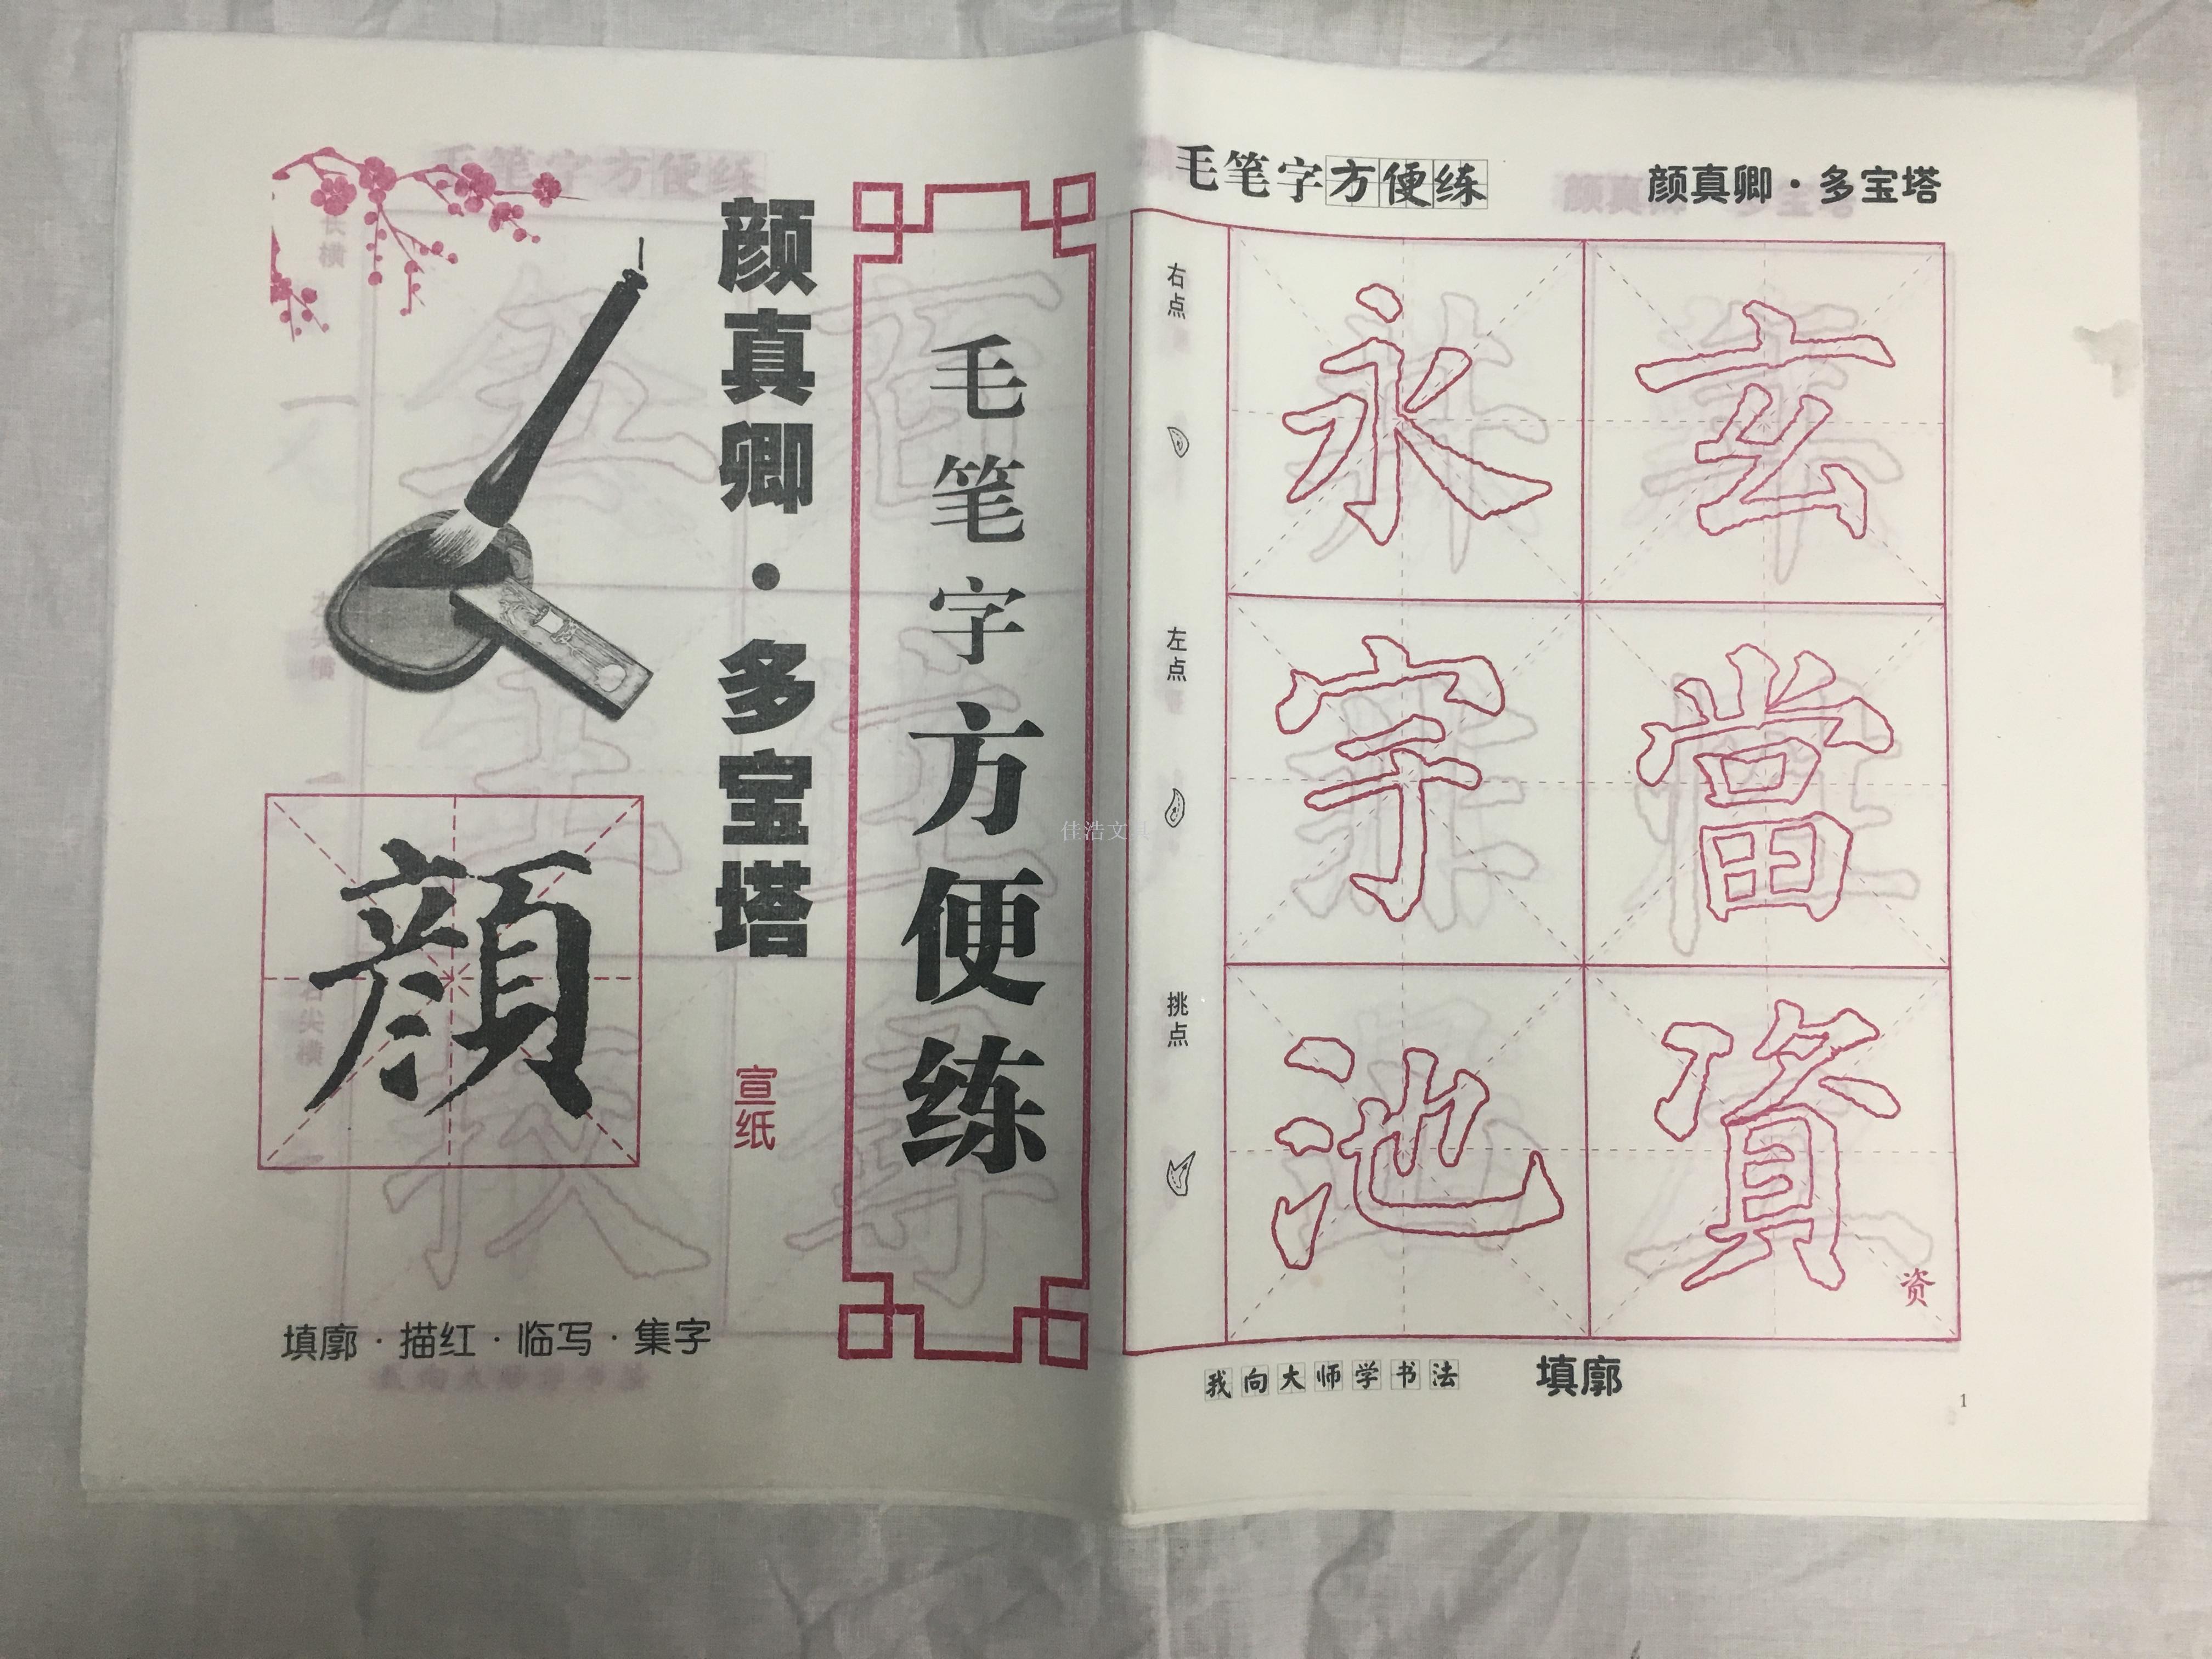 毛笔字方便练
颜真卿·多宝塔
宣纸
顔
填廓·描红·临写·集字
毛笔字方便练
颜真卿·多宝塔
右点
永 玄
左点
字 當
挑点
池 資
资
我向大师学书法
填廓
1
佳浩文具